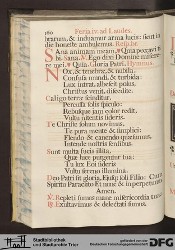 360 Feria iv. ad Laudes.
brarum, & induamur arma lucis: sicut in
die honeste ambulemus.
Sana animam meam, * Quia peccavi ti-
bi. Sana. V. Ego dixi Domine miserere
mei. * Quia. Gloria Patri.
Nox, & tenebræ, & nubila,
Confusa mundi, & turbida:
Lux intrat, albescit polus:
Christus venit, discedite.
Caligo terræ scinditur
Percussa solis spiculo,
Rebusque jam color redit,
Vultu nitentis sideris.
Te Christe solum novimus,
Te pura mente & simplici
Flendo & canendo quæsumus,
Intende nostris sensibus.
Sunt multa fucis illita,
Quæ luce purgentur tua:
Tu lux Eoi sideris
Vultu sereno illumina.
Deo Patri sit gloria, Ejusque soli Filio: Cum
Spiritu Paraclito Et nunc & in perpetuum.
Amen.
V. Repleti sumus mane misericordia tua.
R. Exultavimus & delectati sumus.
Stadtbibliothek
und Stadtarchiv Trier
gefördert von der
Deutschen Forschungsgemeinschaft
DFG